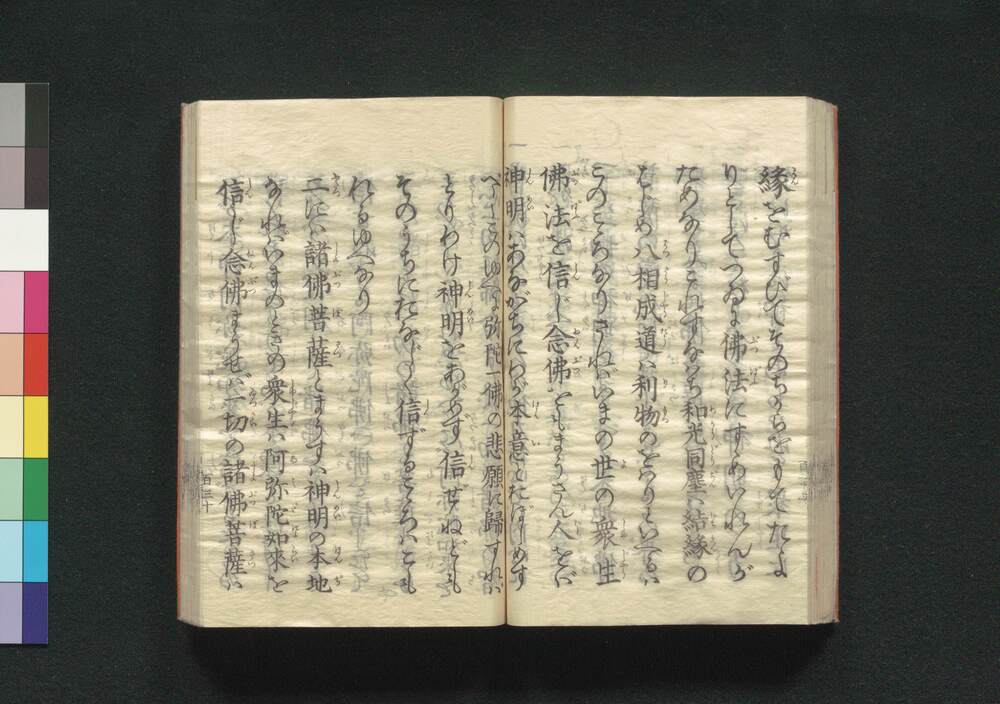 縁をむすびてそのちからをもてたよ
りとしてつゐに佛法にすゝめいれんが
ためなりこれすなはち和光同塵は結縁の
はじめ八相成道は利物のをはりといへるは
このこゝろなりされはいまの世の衆生
佛法を信じ念佛をもまうさん人をば
神明はあながちにわが本意とおぼしめす
べしこのゆへに弥陀一佛の悲願に歸すれは
とりわけ神明をあがめす信ぜねども
そのうちにおなじく信ずるこゝろはこも
れるゆへなり
二には諸佛菩薩とまうすは神明の本地
なれはいまのときの衆生は阿弥陀如來を
信じ念佛まうせば一切の諸佛菩薩は
百三十